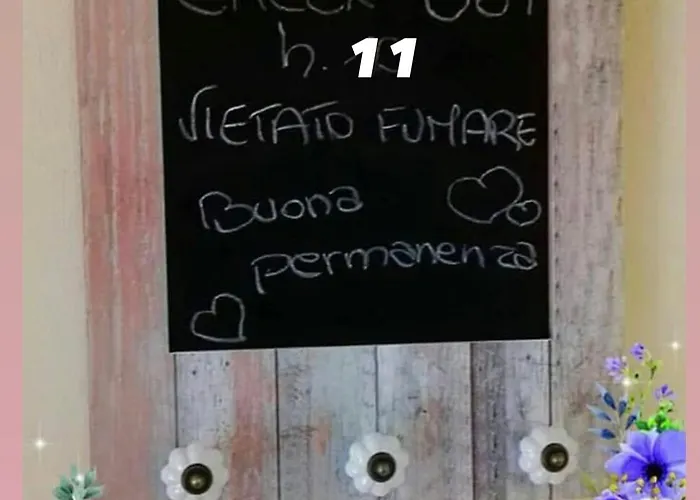 CHECK OUT
h. 11
VIETATO FUMARE
Buona
permanenza